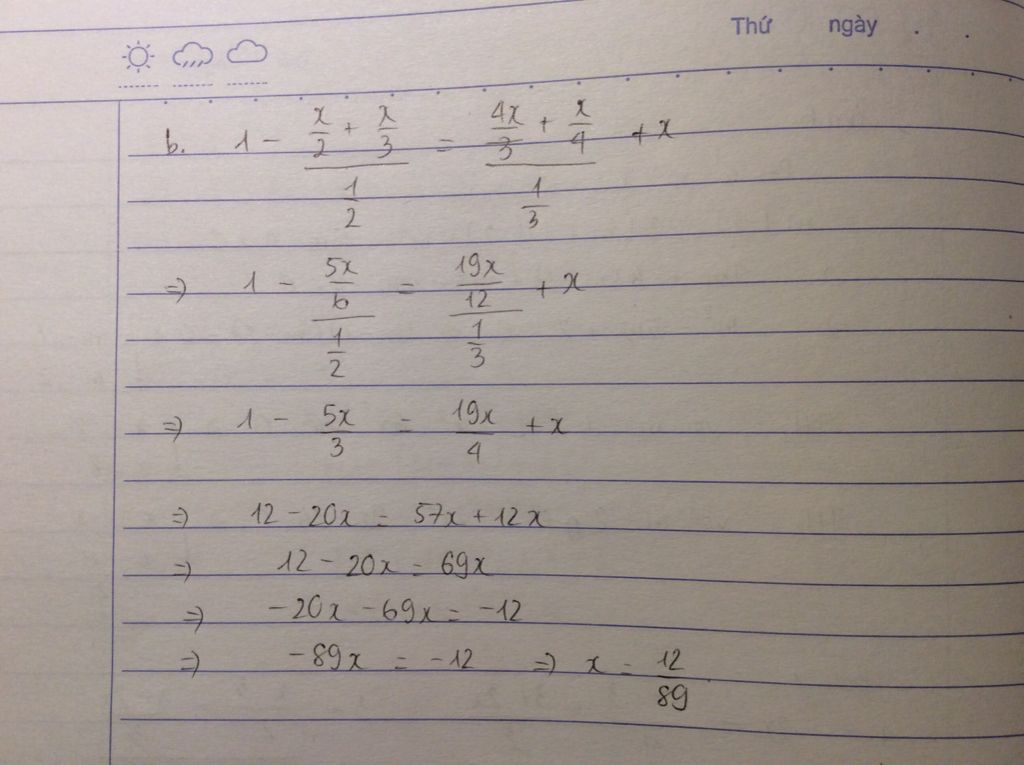 Thứ ngày . .
b. 1 - (x/2 + x/3)/(1/2) = (4x/3 + x/4)/(1/3) + x
=> 1 - (5x/6)/(1/2) = (19x/12)/(1/3) + x
=> 1 - 5x/3 = 19x/4 + x
=> 12 - 20x = 57x + 12x
=> 12 - 20x = 69x
=> -20x - 69x = -12
=> -89x = -12 => x = 12/89